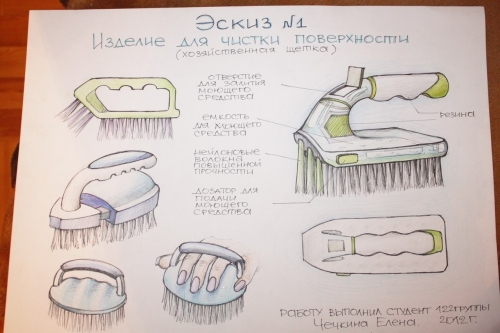 Эскиз №1
Изделие для чистки поверхности
(хозяйственная щетка)
отверстие
для залития
моющего
средства
емкость
для моющего
средства
нейлоновые
волокна
повышенной
прочности
дозатор для
подачи
моющего
средства
резина
Работу выполнил студент 122группы
Чечкина Елена. 2012г.